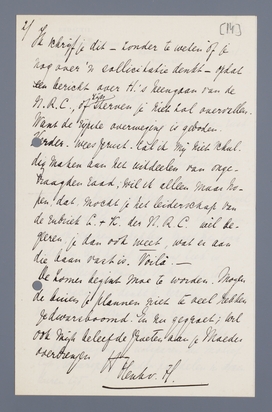 2/ [14]
Ik schrijf je dit – zonder te weten of je
nog over 'n sollicitatie denkt – opdat
een bericht over H.'s heengaan van de
N.R.C., of sterven je niet zal overvallen.
Want de rijpste overweging is geboden.
Verder: wees gerust. Ik zal mij niet schul-
dig maken aan het uitdeelen van onge-
vraagden raad; wil ik alleen maar ho-
pen, dat, mocht je het leiderschap van
de rubriek L. + K. der N.R.C. wil be-
geeren, je dan ook weet, wat er aan
die baan vast is. Voilà. —
De zomer begint moe te worden. Mogen
de buien je plannen niet te veel hebben
gedwarsboomd en nu gegroet; wil
ook mijn beleefde groeten aan je Moeder
overbrengen
Henkv. H.